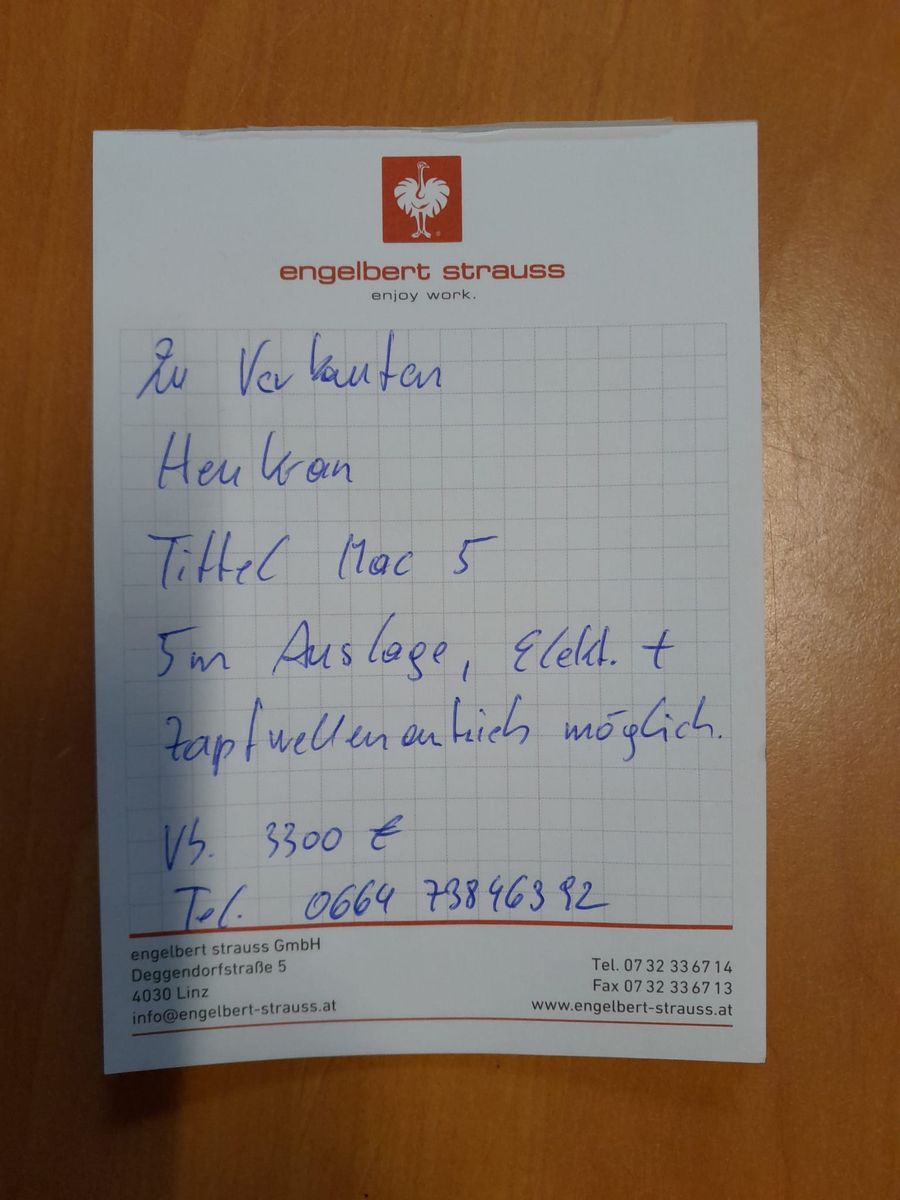 engelbert strauss
enjoy work.
Zu Verkaufen
Heukran
Tittel Mac 5
5m Auslage, Elekt. +
Zapfwellenantrieb möglich.
Vb. 3300 €
Tel. 0664 73846392
engelbert strauss GmbH
Deggendorfstraße 5
4030 Linz
info@engelbert-strauss.at
Tel. 07 32 33 67 14
Fax 07 32 33 67 13
www.engelbert-strauss.at